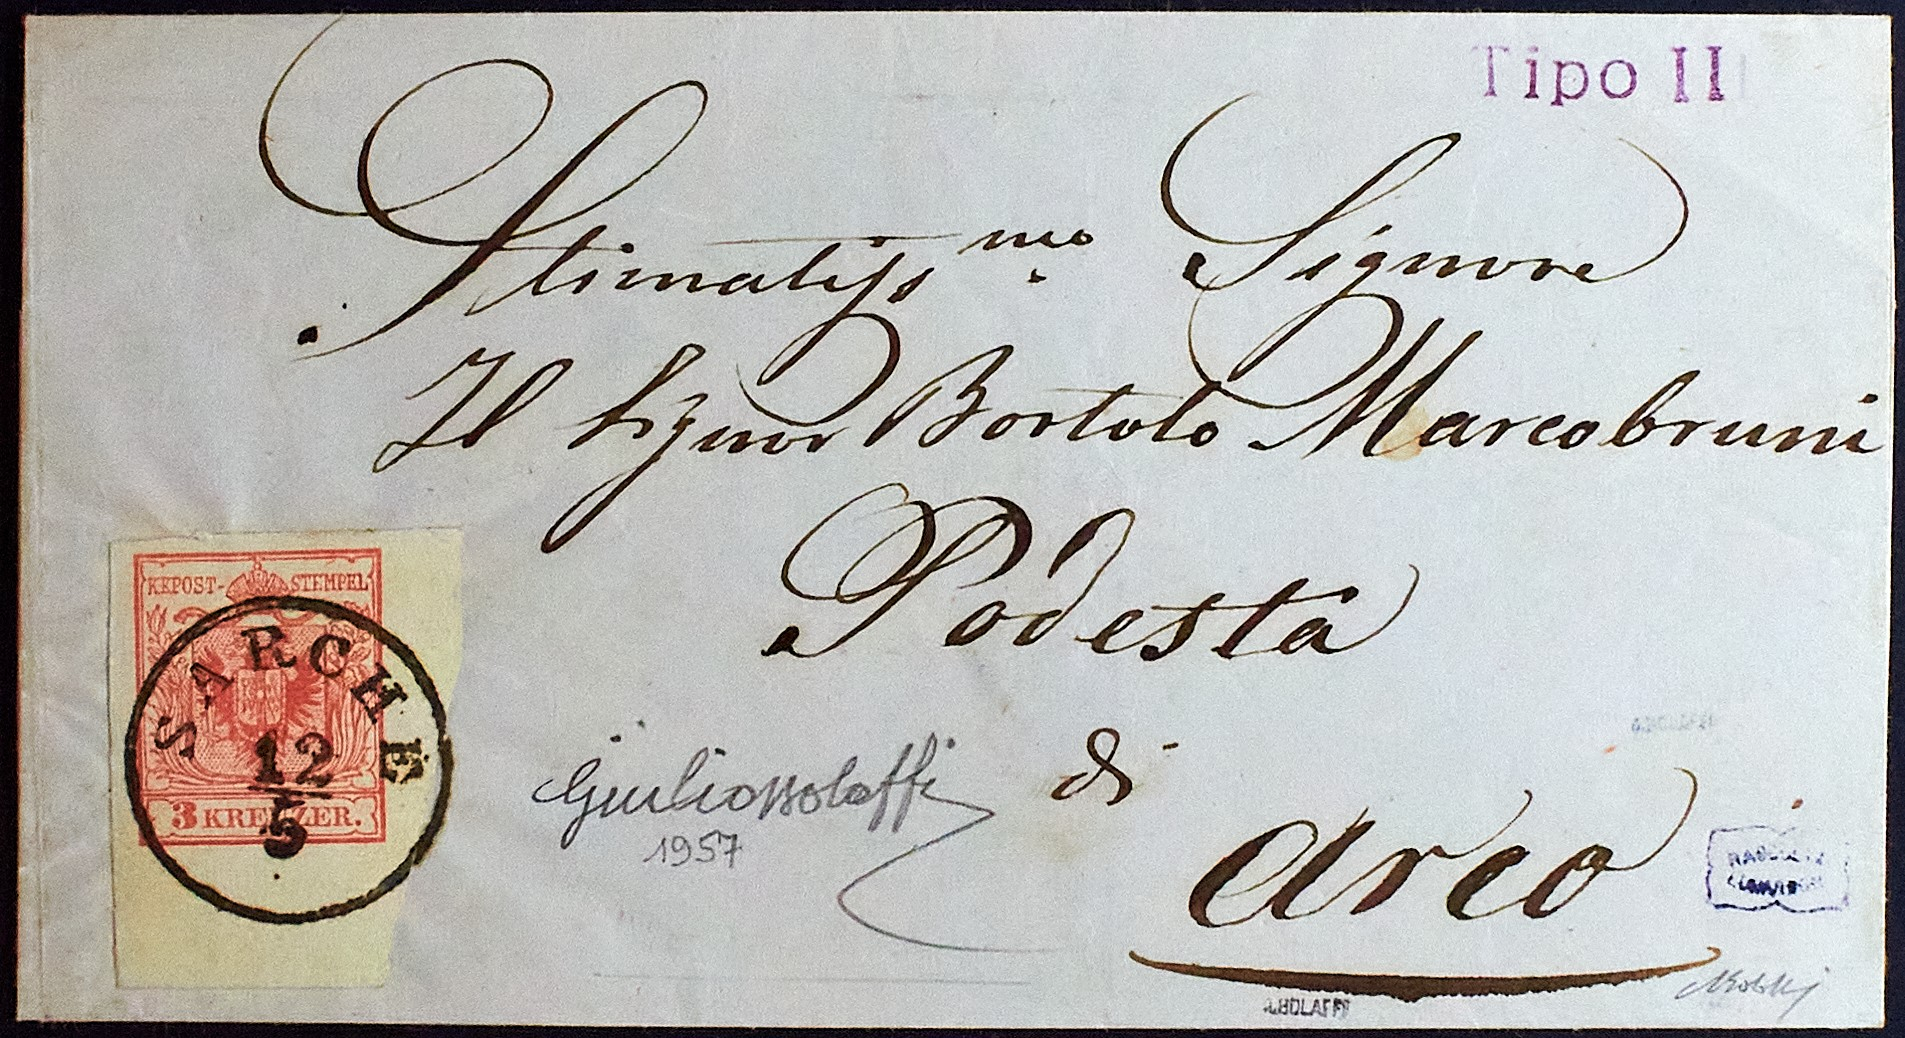 Tipo II
Stimatiss.mo Signore
Il Signor Bortolo Marcobruni
Podestà
di
Arco
KKPOST-STEMPEL
SARCHE
12/5
3 KREUZER.
Giulio Bolaffi
1957
G.BOLAFFI
G.BOLAFFI